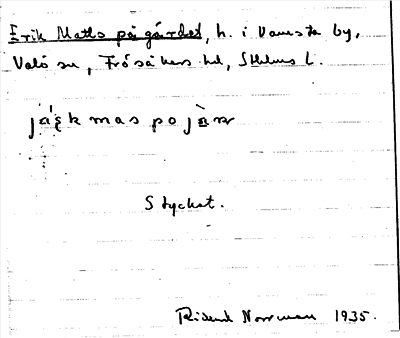 Erik Matts på gärdet, h. i Vamsta by,
Valö sn, Frösåkers hd, Sthlms L.
jä̀ȩkmas po jàɳ
Stycket.
Rident Norrman 1935.